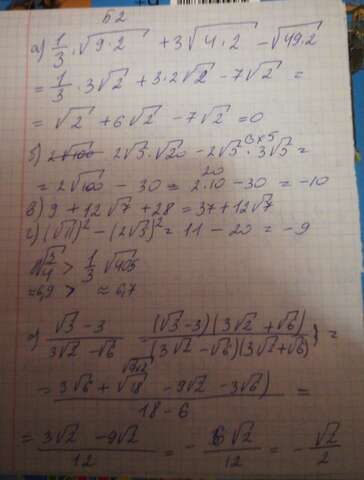 Б2
а) 1/3 · √9·2 + 3√4·2 − √49·2
= 1/3 · 3√2 + 3·2√2 − 7√2 =
= √2 + 6√2 − 7√2 = 0
б) 2√5·√20 − 2√5 · 3√5 =
= 2√100 − 30 = 2·10 − 30 = −10
в) 9 + 12√7 + 28 = 37 + 12√7
г) (√11)² − (2√3)² = 11 − 20 = −9
> 1/3 √405
≈6,9 > ≈6,7
√3 − 3 / 3√2 − √6 (√3 − 3)(3√2 + √6) / (3√2 − √6)(3√2 + √6) =
= 3√6 + √18 − 9√2 − 3√6) / 18 − 6 =
= 3√2 − 9√2 / 12 = − 6√2 / 12 = − √2 / 2